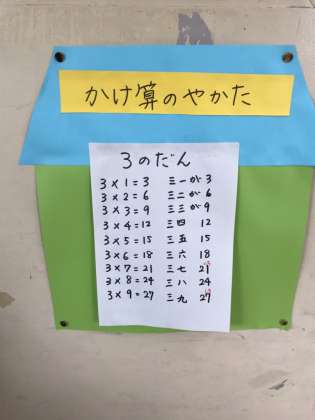 かけ算のやかた
3のだん
3×1=3 三一が3
3×2=6 三二が6
3×3=9 三三が9
3×4=12 三四 12
3×5=15 三五 15
3×6=18 三六 18
3×7=21 三七 21
3×8=24 三八 24
3×9=27 三九 27